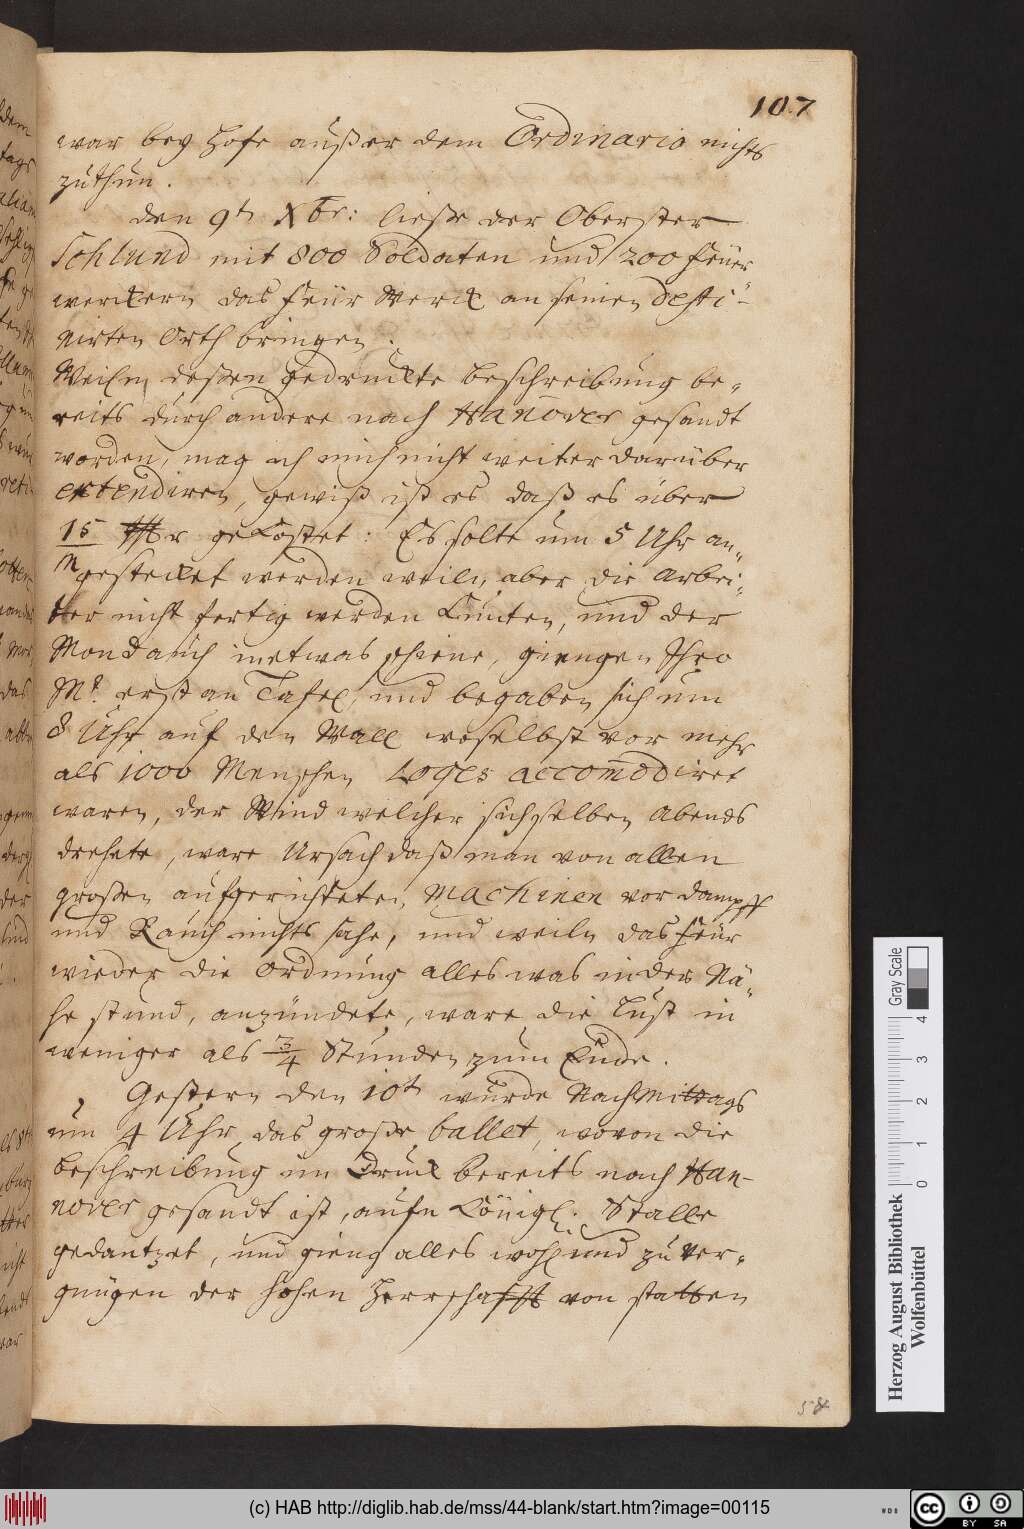 107
war bey Hofe außer dem Ordinario nichts
zuthun.
den 9t Xbr: ließe der Oberster
Schlund mit 800 Soldaten und 200 Feüer
werckern das Feür Werck an seinen desti-
nirten Orth bringen.
Weiln deßen gedruckte Beschreibung be-
reits durch andere nach Hanover gesandt
worden, mag ich mich nicht weiter darüber
extendiren, gewiß ist es daß es über
15 gekostet: Es solte um 5 Uhr an-
m
gesteckt werden weiln aber die Arbei-
ter nicht fertig werden kunten, und der
Mond auch inetwas schiene, giengen Ihro
Mt. erst an Tafel, und begaben sich um
8 Uhr auf den Wall woselbst vor mehr
als 1000 Menschen Loges accomodiret
waren, der Wind welcher sich selben Abends
drehete, ware Ursach daß man von allen
großen aufgerichteten Machinen vor dampff
und Rauch nichts sahe, und weiln das Feür
wieder die Ordnung alles was in der Nä-
he stund, anzündete, ware die Lust in
weniger als 3/4 Stunden zum Ende.
Gestern den 10t wurde Nachmittags
um 4 Uhr das große ballet, wovon die
Beschreibung im Druck bereits nach Han-
nover gesandt ist, aufn Königl: Stalle
gedantzet, und gieng alles wohl und zu Ver-
gnügen der hohen Herrschafft von statten
58
Gray Scale
0 1 2 3 4
Herzog August Bibliothek
Wolfenbüttel
(c) HAB http://diglib.hab.de/mss/44-blank/start.htm?image=00115
WDB
cc BY SA